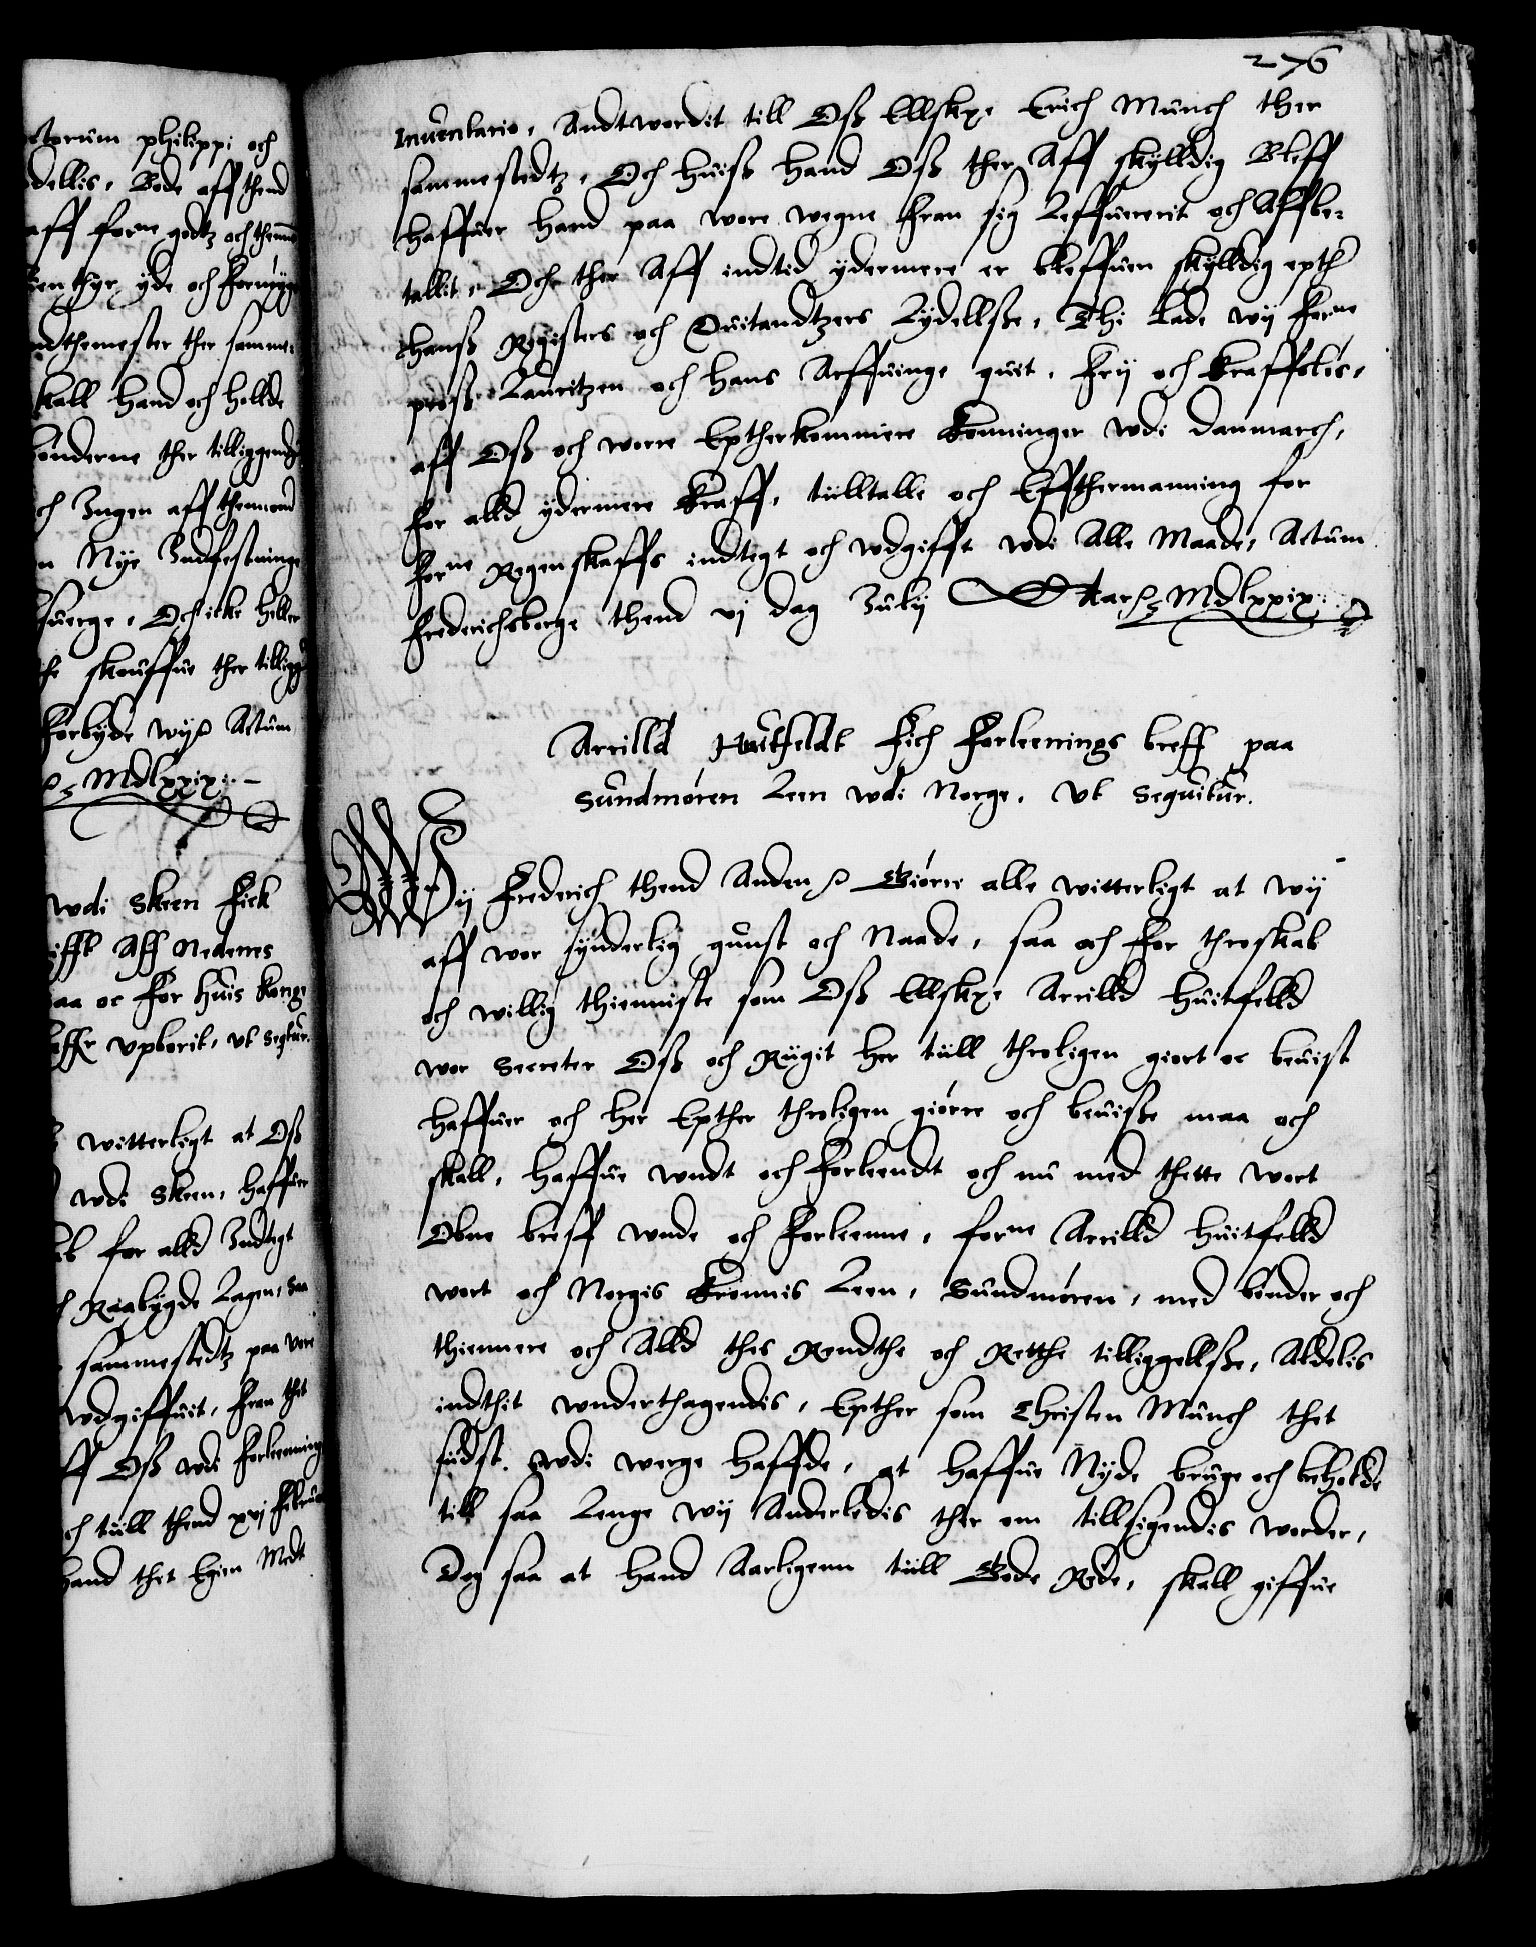 ctorum philippi och
dellis, Bode aff thend
aff forne godtz och thennom
yde och Fornüge
ndthemester ther samme-
skall hand och holde
bønderne ther tilliggende
ch Ingen aff thennom
n Nye Indfestninge
suerge, Och icke heller
skouffue ther tilligge
Forbyde wij Actum
Mdlxxix
wdi Skeen Fick
ifft Aff Nedenes
aa oc For huis Konge
Vpborit, vt seqtur.
witterligt at Oss
wdi Skeen, haffuer
for alld Indtegt
Raabygde Lagen, saa
sammestedtz paa vore
wdgiffuit, Fran thet
ff Oss wdi Forleening
ch tiill thend xvj Februa
hand thet Igien Medt
276
Inuentario, Andtwordit till Oss Ellskx. Erich Munch ther
sammestedtz, Och huiss hand Oss ther Aff skylldig Bleff
haffuer hand paa wore wegne Fran sig Leffuererit och Affbe-
tallit, Och ther Aff indtid ydermere er bleffuen skylldig epther
hanss Registers och Quitandtzers Lydellsse, Thi Lade wij Forne
pross Lauritzen och hans Arffuinge quit, Frij och Kraffsløs,
aff Oss och worre Eptherkommere Konninger wdi Danmarch,
for alld ydermere Kraff, tiilltalle och Effthermanning for
Forne Regenskaffs indtegt och wdgifft wdi Alle Maade, Actum
Frederichsborge thend vj dag Julij Aar Mdlxxix
Arrilld Huitfeldt Fich Forleenings breff paa
Sundmøren Leen wdi Norge. Vt Sequitur.
Wij Frederich thend Anden Giørre alle witterligt at wij
aff wor synderlig gunst och Naade, saa och For throskab
och willig thienniste som Oss Ellskx. Arrilld Huitfelld
wor Secreter Oss och Riigit her tiill throligen giort oc beuist
haffuer och her Epther throligen giørre och beuisse maa och
skall, haffue wndt och Forleendt och nu med thette wort
Obne breff wnde och Forleenne, forne Arrilld Huitfelld
wort och Norgis Kronnis Leen, Sundmøren, med bønder och
thiennere och Alld thes Rendthe och Retthe tilliggellsse, Aldelis
indthit wnderthagendis, Epther som Christen Munch thet
siidst wdi werge haffde, at haffue Nyde bruge och beholde
till saa Lenge wij Anderledis ther om tillsigendis worder,
Dog saa at hand Aarligenn tiill Gode Rede, skall giffue